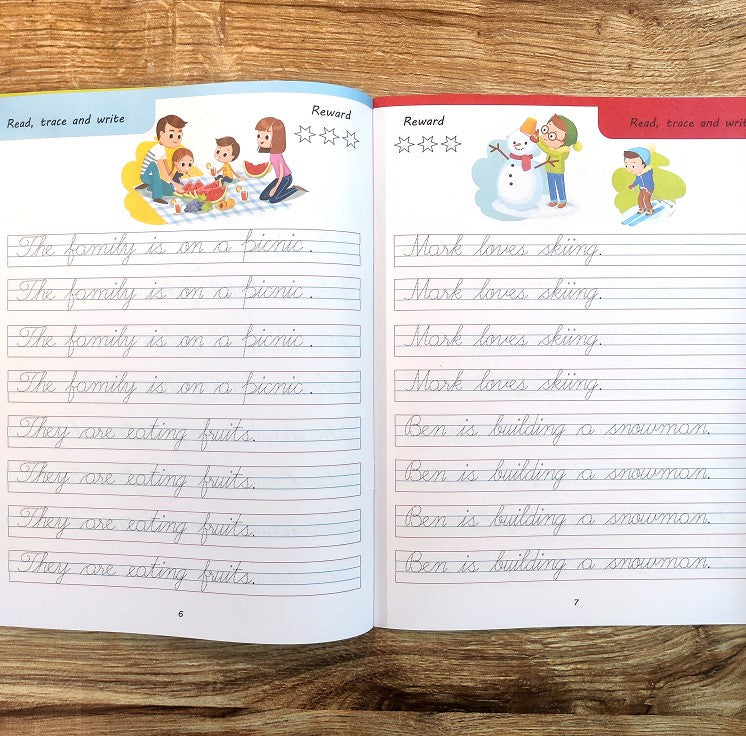 Read, trace and write
Reward
The family is on a picnic.
The family is on a picnic.
The family is on a picnic.
The family is on a picnic.
They are eating fruits.
They are eating fruits.
They are eating fruits.
They are eating fruits.
6
Reward
Read, trace and writ
Mark loves skiing.
Mark loves skiing.
Mark loves skiing.
Mark loves skiing.
Ben is building a snowman.
Ben is building a snowman.
Ben is building a snowman.
Ben is building a snowman.
7